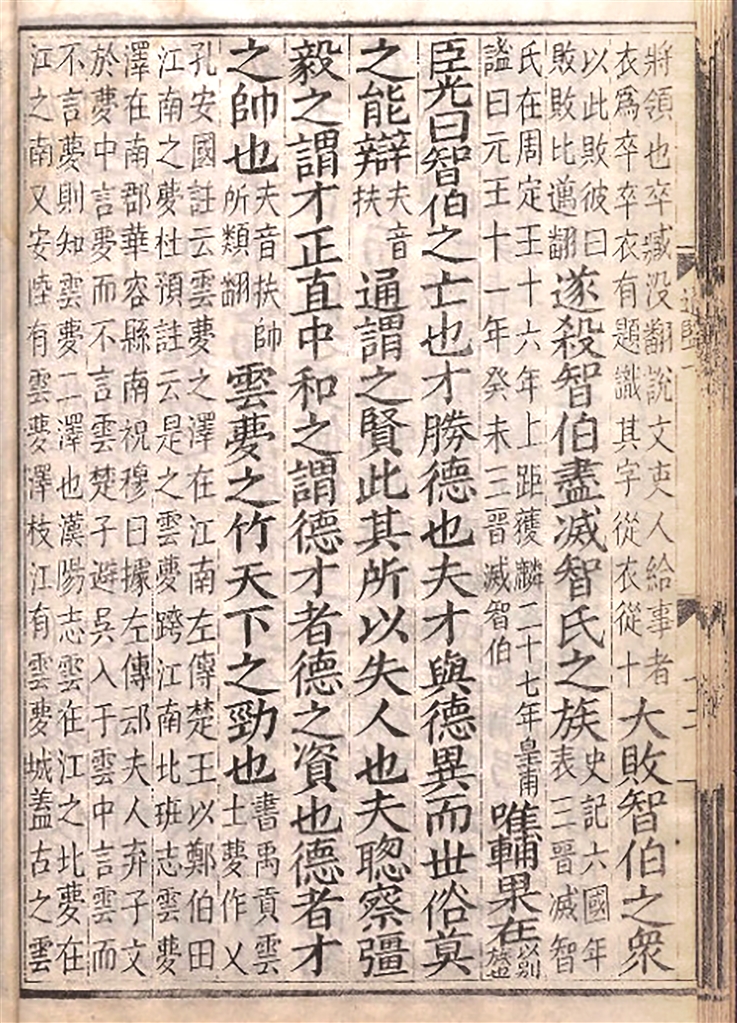 將領也卒臧没翻說文吏人給事者衣爲卒卒衣有題識其字從衣從十大敗智伯之衆
以此敗彼曰敗敗比邁翻遂殺智伯盡滅智氏之族史記六國年表三晉滅智
氏在周定王十六年上距獲麟二十七年皇甫謚曰元王十一年癸未三晉滅智伯唯輔果在以別族也
臣光曰智伯之亡也才勝德也夫才與德異而世俗莫
之能辯夫音扶通謂之賢此其所以失人也夫聦察彊
毅之謂才正直中和之謂德才者德之資也德者才
之帥也夫音扶帥所類翻雲夢之竹天下之勁也書禹貢雲土夢作乂
孔安國註云雲夢之澤在江南左傳楚王以鄭伯田江南之夢杜預註云是之雲夢跨江南北班志雲夢
澤在南郡華容縣南祝穆曰據左傳䢵夫人弃子文於夢中言夢而不言雲楚子避吳入于雲中言雲而
不言夢則知雲夢二澤也漢陽志雲在江之北夢在江之南又安陸有雲夢澤枝江有雲夢城蓋古之雲